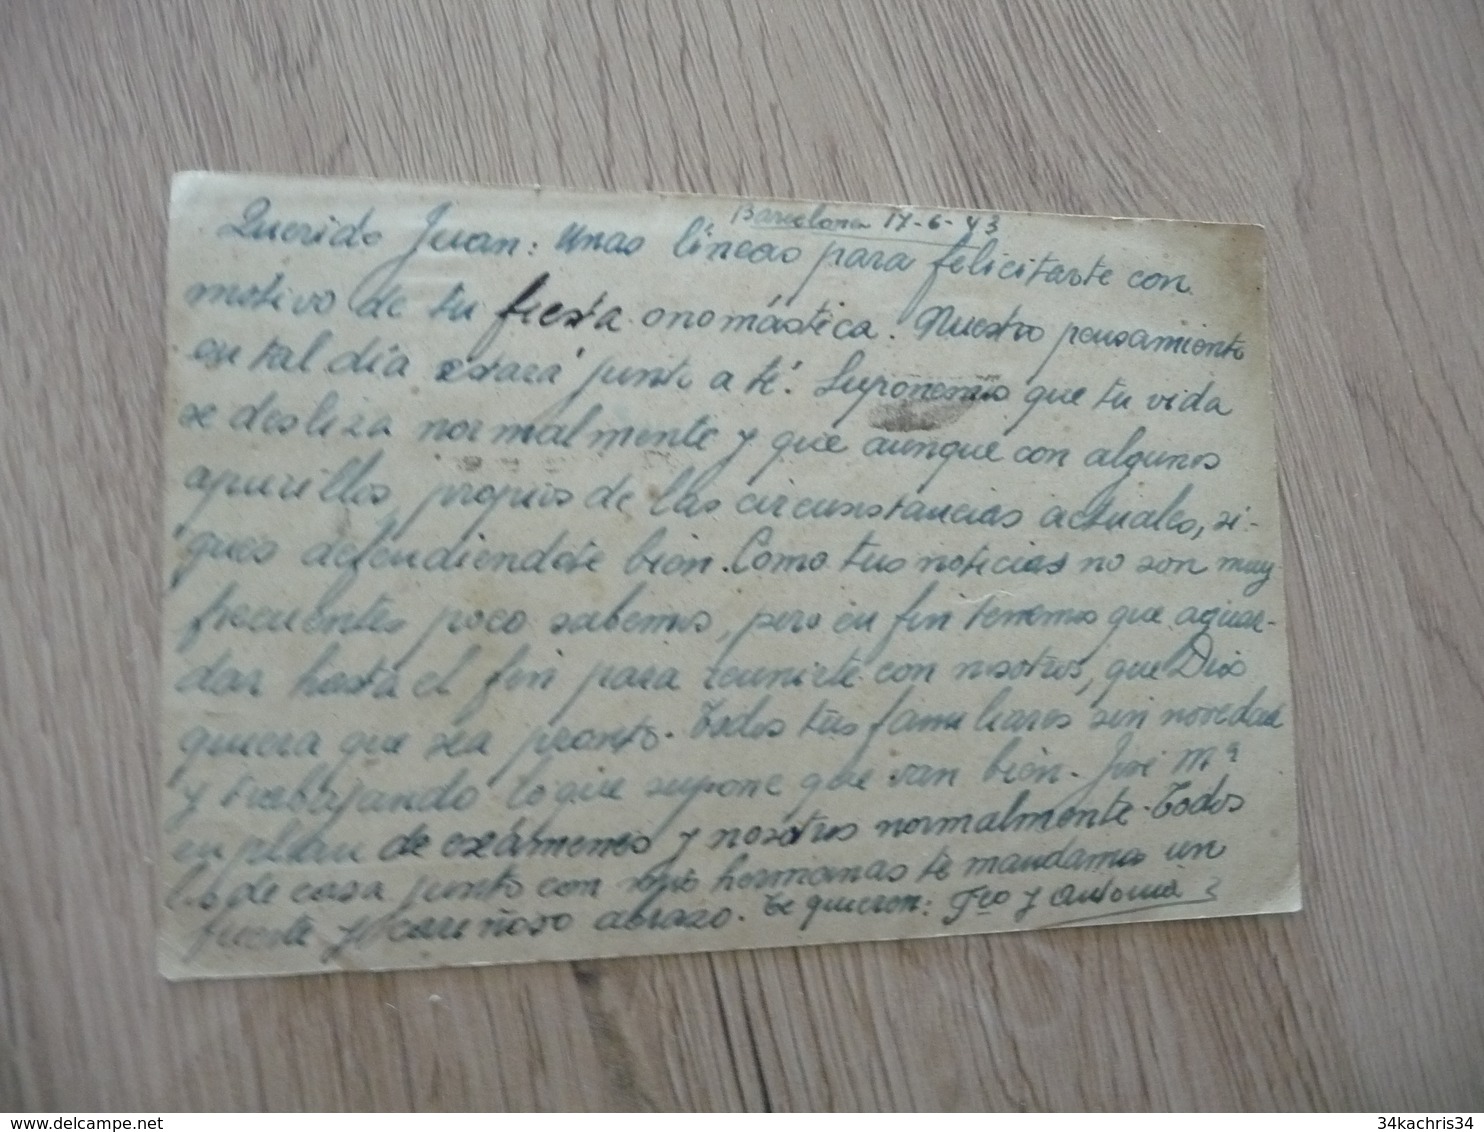 Barcelona 17-6-43
Querido Juan: Unas líneas para felicitarte con
motivo de tu fiesta onomástica. Nuestro pensamiento
en tal día estará junto a té. Suponemos que tu vida
se desliza normalmente y que aunque con algunos
apurillos, propios de las circunstancias actuales, si-
gues defendiendote bien. Como tus noticias no son muy
frecuentes poco sabemos, pero en fin tenemos que aguar-
dar hasta el fin para reunirte con nosotros, que Dios
quiera que sea pronto. Todos tus familiares sin novedad
y trabajando lo que supone que van bien. José Mª
en plan de exámenes y nosotros normalmente. Todos
los de casa junto con hermanas te mandamos un
fuerte y cariñoso abrazo. Te quieren: Fco y Antonia
34kachris34
www.delcampe.net